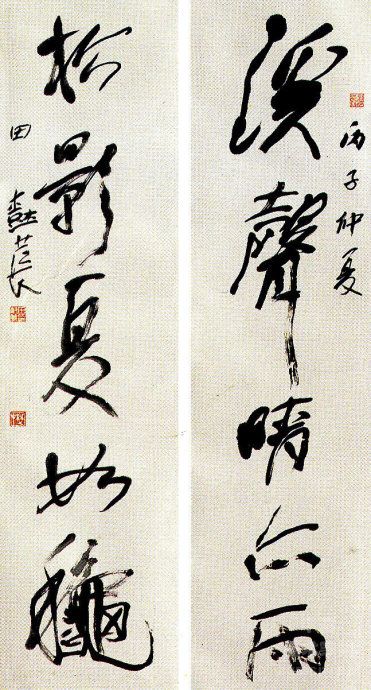 溪聲晴亦雨
丙子仲夏
松影夏如龝
田